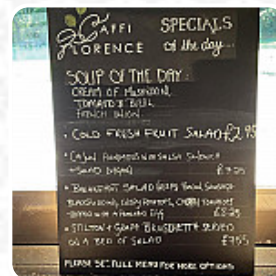 CAFFI
FLORENCE
SPECIALS
of the day...
SOUP OF THE DAY:
CREAM OF MUSHROOM,
TOMATO & BASIL
FRENCH ONION.
• COLD FRESH FRUIT SALAD £2.95
• CAJUN SALSA SANDWICH
+ SALAD
• BREAKFAST SALAD BACON, SAUSAGE
BLACK PUDDING, CRISPY POTATOES, CHERRY TOMATOES
TOPPED WITH A POACHED EGG £8.25
• STILTON + GRAPE BRUSCHETTA SERVED
ON A BED OF SALAD £7.55
PLEASE SEE FULL MENU FOR MORE OPTIONS